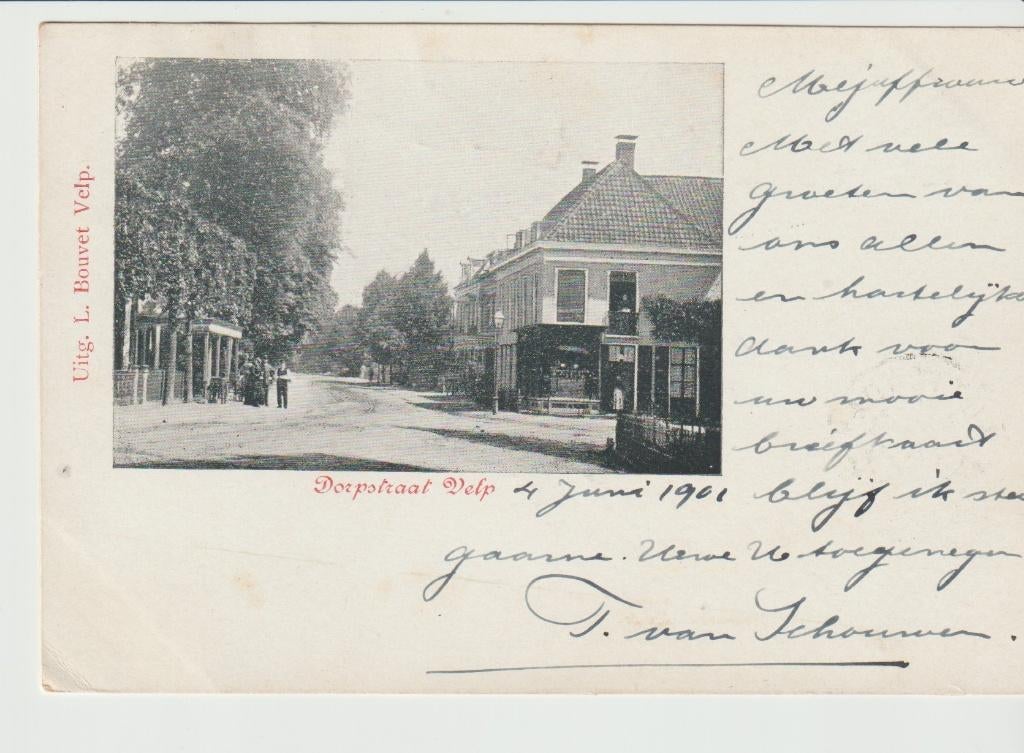 Uitg. L. Bouvet Velp.
Mejuffrouw
Met vele
groeten van
ons allen
en hartelijk
dank voor
uw mooie
briefkaart
Dorpstraat Velp 4 Juni 1901 blijf ik stee
gaarne. Uwe U toegenegen
T. van Schouwen.